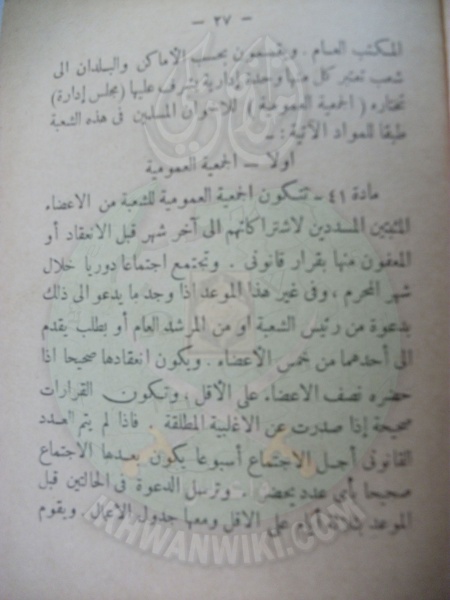 - ٢٧ -
المكتب العام . ويقسمون بحسب الأماكن والبلدان الى
شعب تعتبر كل منها وحدة إدارية يشرف عليها (مجلس إدارة)
تختاره ( الجمعية العمومية ) للاخوان المسلمين فى هذه الشعبة
طبقا للمواد الآتية : -
اولا — الجمعية العمومية
مادة ٤١ - تتكون الجمعية العمومية للشعبة من الاعضاء
المثبتين المسددين لاشتراكاتهم الى آخر شهر قبل الانعقاد أو
المعفون منها بقرار قانونى . وتجتمع اجتماعا دوريا خلال
شهر المحرم ، وفى غير هذا الموعد اذا وجد ما يدعو الى ذلك
بدعوة من رئيس الشعبة او من المرشد العام أو بطلب يقدم
الى أحدهما من خمس الأعضاء . ويكون انعقادها صحيحا اذا
حضره نصف الاعضاء على الأقل ، وتكون القرارات
صحيحة إذا صدرت عن الاغلبية المطلقة . فاذا لم يتم العدد
القانونى أجل الاجتماع أسبوعا يكون بعدها الاجتماع
صحيحا بأى عدد يحضر . وترسل الدعوة فى الحالتين قبل
الموعد بثلاثة أيام على الاقل ومعها جدول الاعمال . ويقوم
IKHWANWIKI.COM